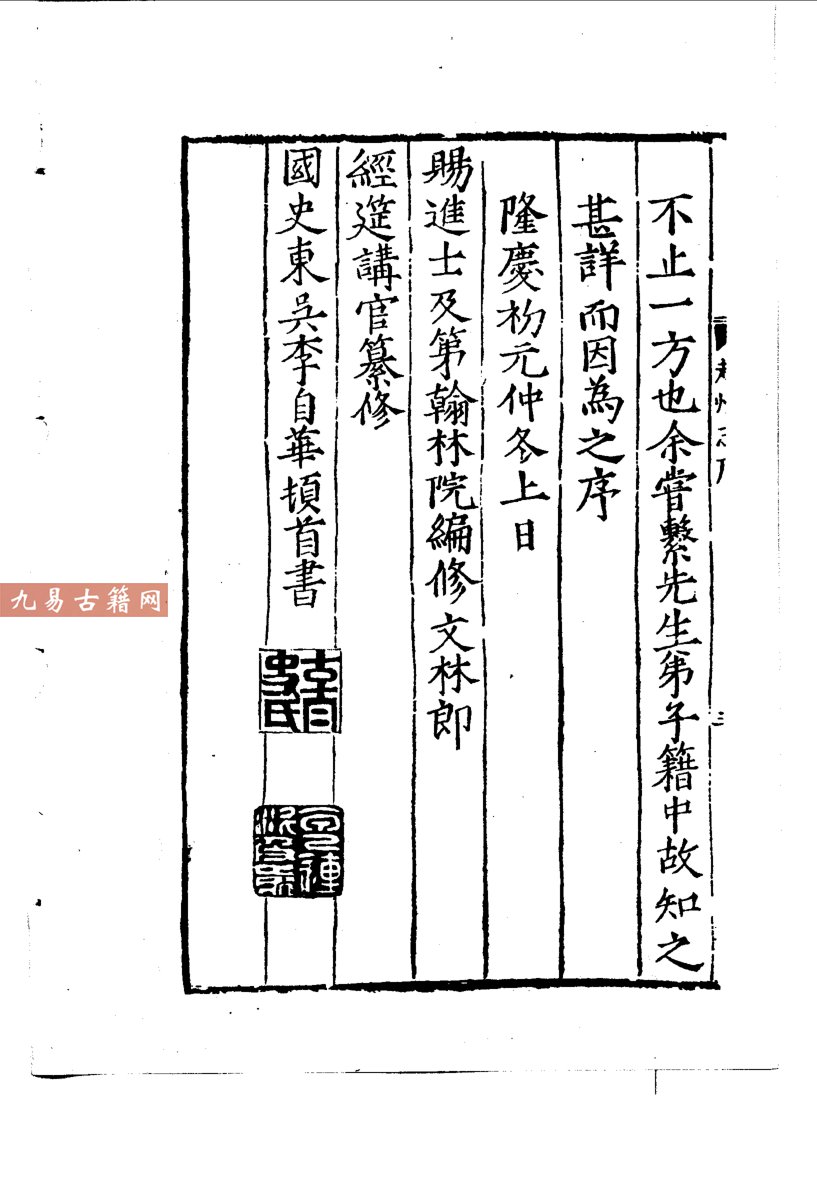 不止一方也余嘗繫先生弟子籍中故知之
甚詳而因為之序
隆慶初元仲冬上日
賜進士及第翰林院編修文林郎
經筵講官纂修
國史東吳李自華頓首書
三
九易古籍网